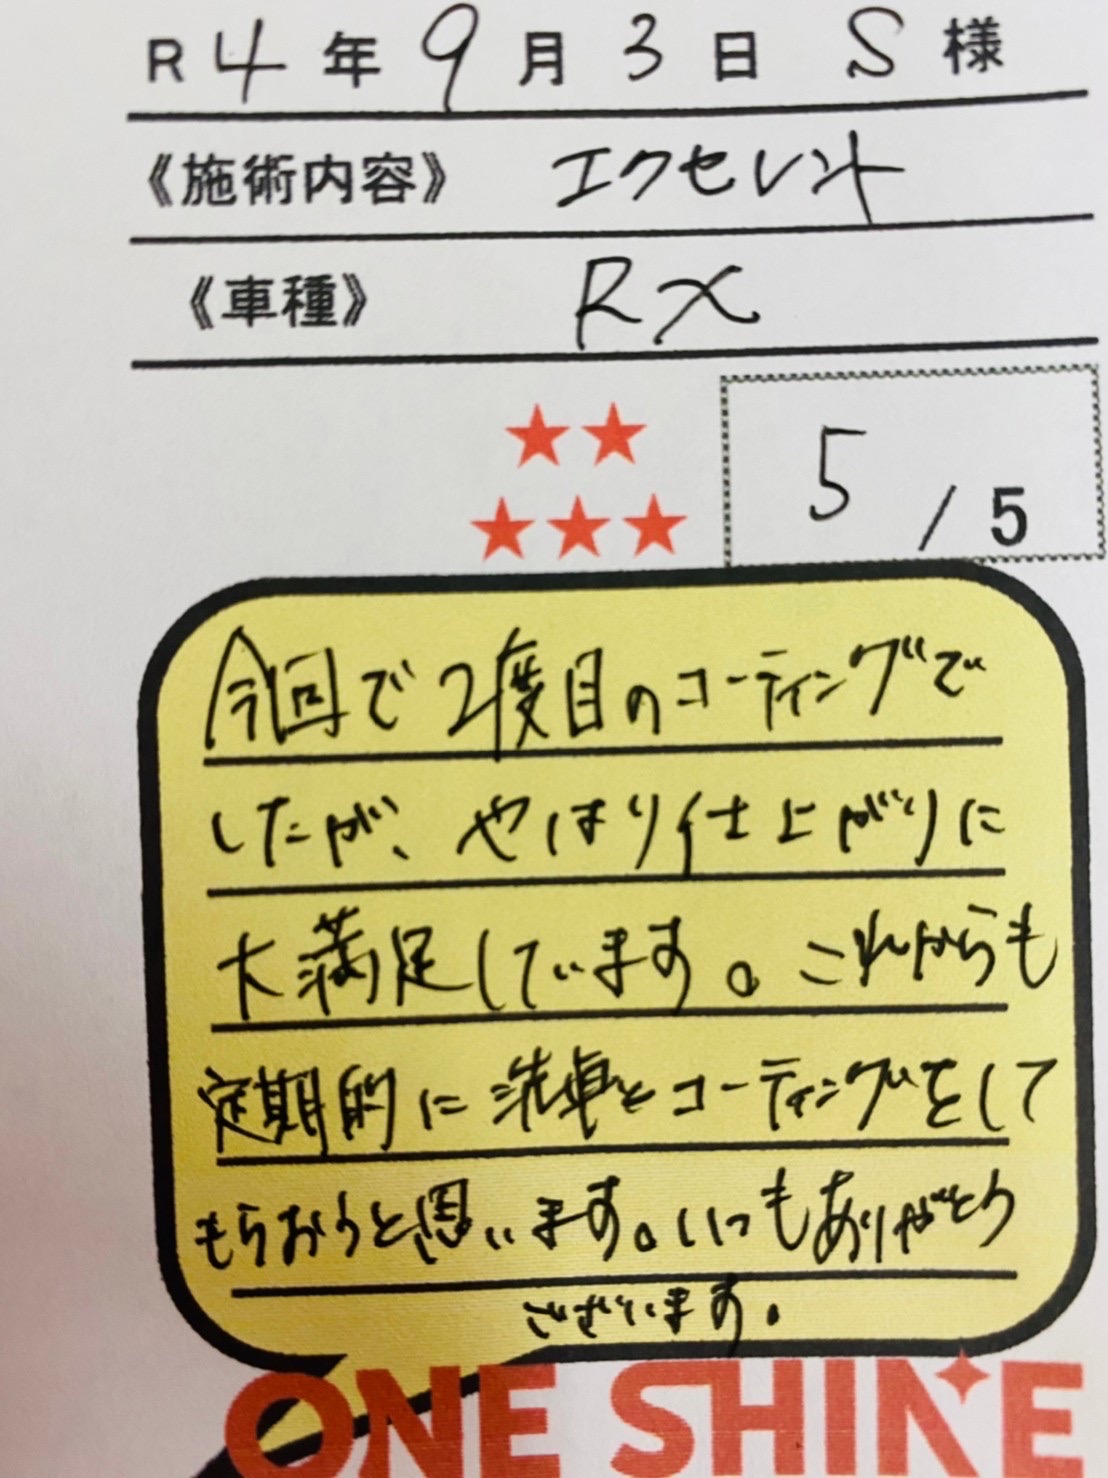 R4年9月3日 S様
《施術内容》 エクセレント
《車種》 RX
★★
★★★
5/5
今回で2度目のコーティングで
したが、やはり仕上がりに
大満足しています。これからも
定期的に洗車とコーティングをして
もらおうと思います。いつもありがとう
ございます。
ONE SHINE